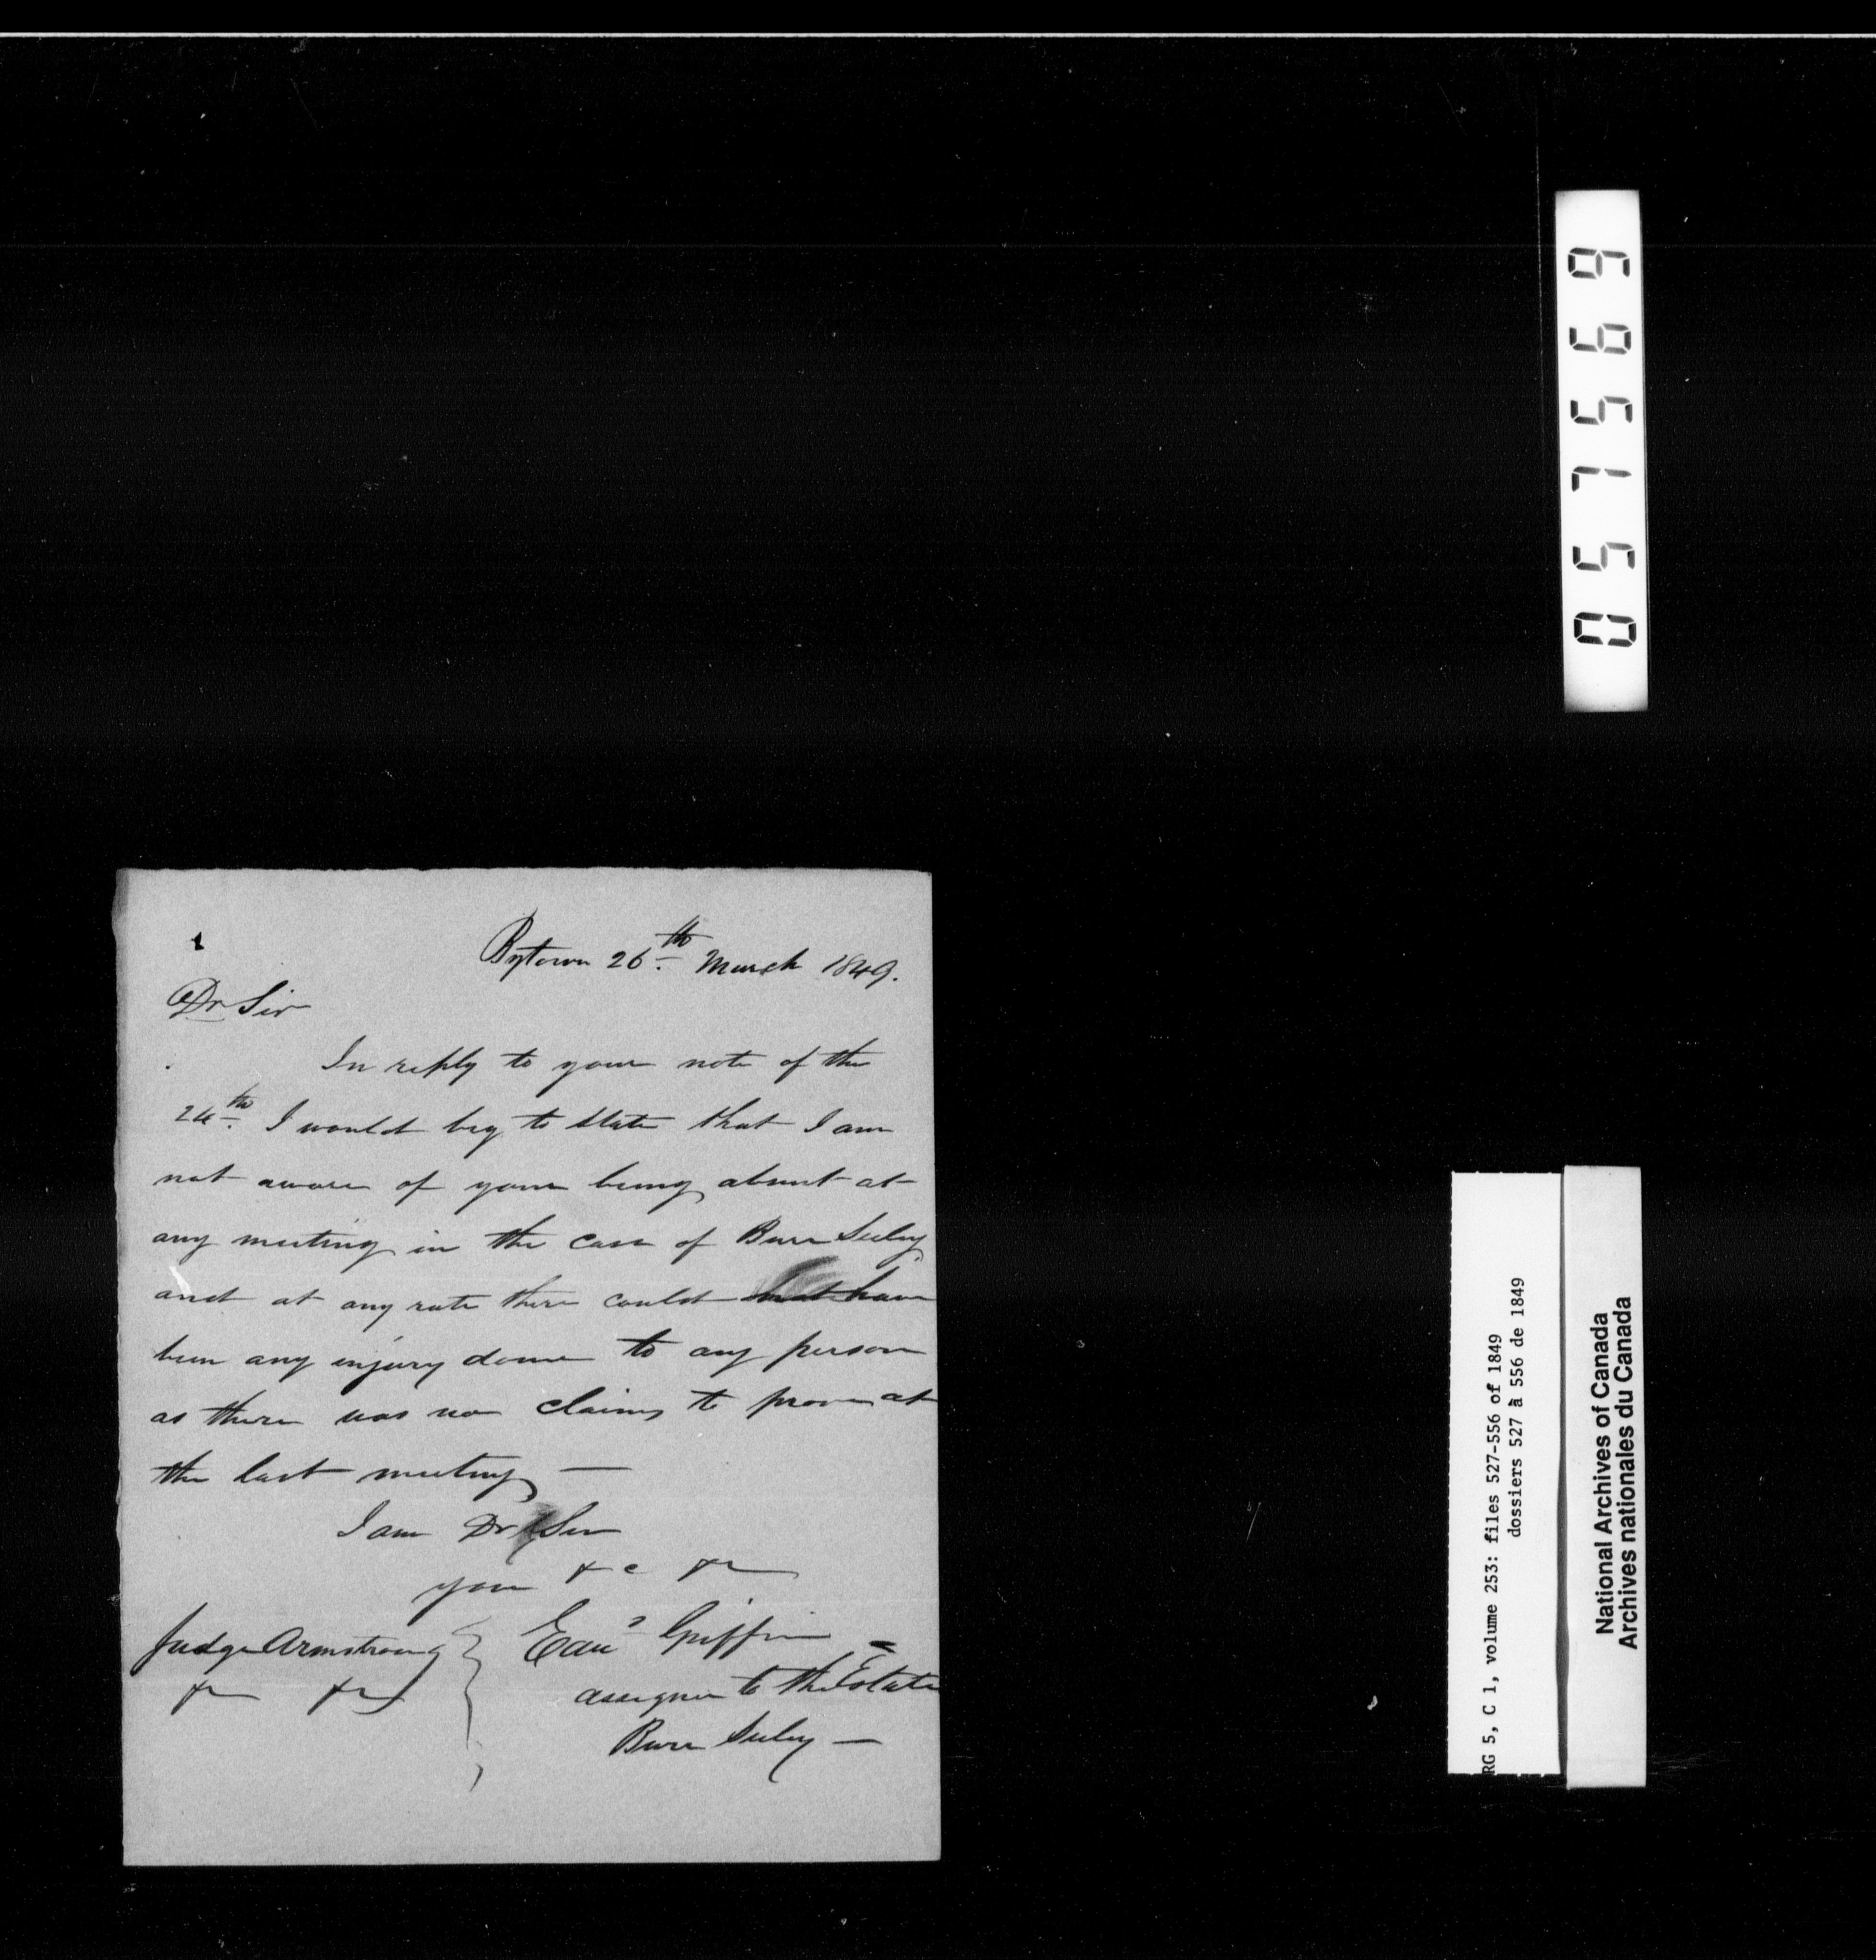 Bytown 26th. March 1849.
Dr Sir
In reply to your note of the
24th. I would beg to state that I am
not aware of your being absent at
any meeting in the case of Burr Seeley
and at any rate there could not have
been any injury done to any person
as there was no claims to prove at
the last meeting —
I am Dr Sir
your &c &c
Judge Armstrong
&c &c
Griffin
assignee to the Estate
Burr Seeley —
057569
RG 5, C 1, volume 253: files 527-556 of 1849
dossiers 527 à 556 de 1849
National Archives of Canada
Archives nationales du Canada